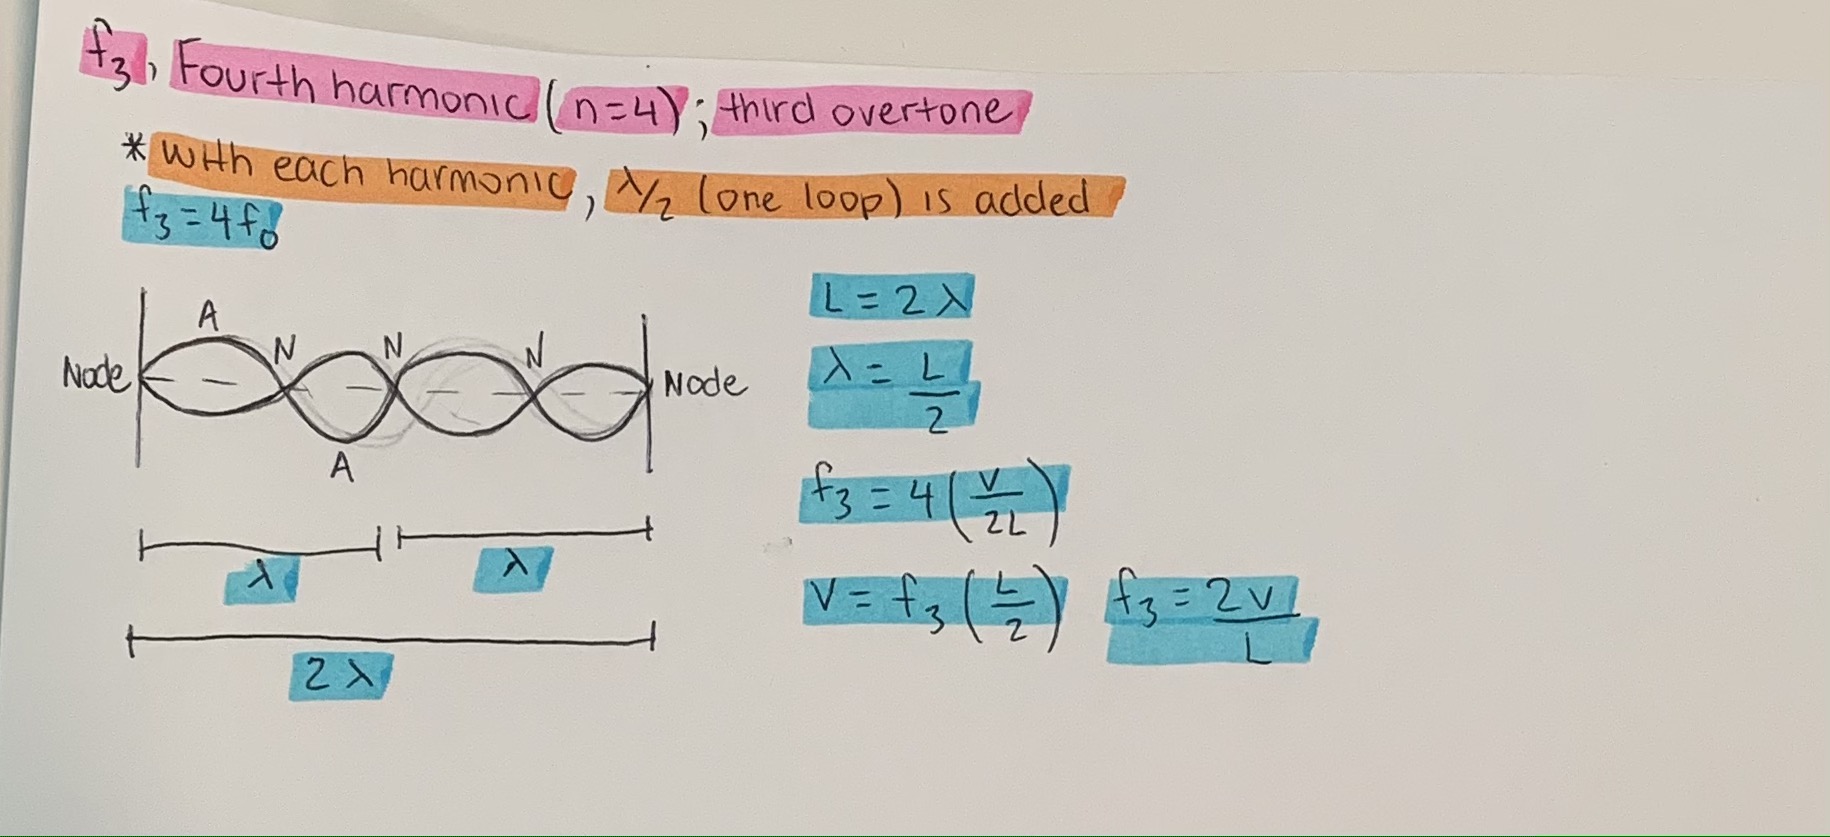 f₃, Fourth harmonic (n=4); third overtone
* with each harmonic, λ/2 (one loop) is added
f₃ = 4f₀
A
N
N
N
Node
Node
A
λ
λ
2λ
L = 2λ
λ = L/2
f₃ = 4(V/2L)
V = f₃(L/2)
f₃ = 2V/L